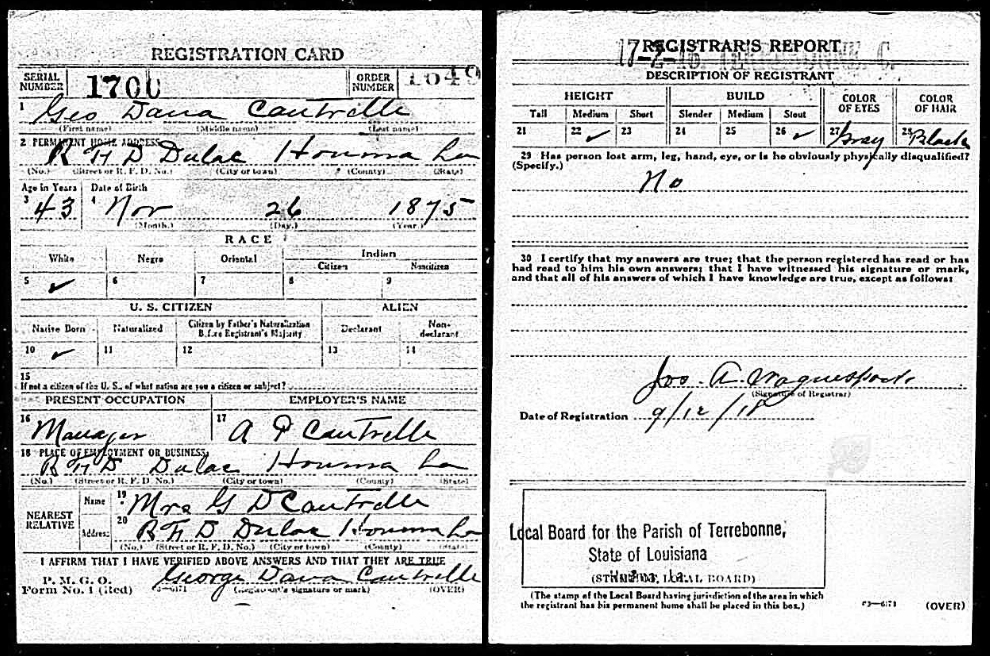 REGISTRATION CARD
SERIAL NUMBER 1700 ORDER NUMBER 1649
1 Geo Dana Cantrelle
(First name) (Middle name) (Last name)
2 PERMANENT HOME ADDRESS:
R F D Dulac Houma La
(No.) (Street or R. F. D. No.) (City or town) (County) (State)
Age in Years Date of Birth
3 43 4 Nov 26 1875
(Month.) (Day.) (Year.)
RACE
White Negro Oriental Indian
Citizen Noncitizen
5 ✓ 6 7 8 9
U. S. CITIZEN ALIEN
Native Born Naturalized Citizen by Father's Naturalization Before Registrant's Majority Declarant Non-declarant
10 ✓ 11 12 13 14
15
If not a citizen of the U. S., of what nation are you a citizen or subject?
PRESENT OCCUPATION EMPLOYER'S NAME
16 Manager 17 A P Cantrelle
18 PLACE OF EMPLOYMENT OR BUSINESS:
R F D Dulac Houma La
(No.) (Street or R. F. D. No.) (City or town) (County) (State)
NEAREST RELATIVE
Name 19 Mrs G D Cantrelle
Address: 20 R F D Dulac Houma La
(No.) (Street or R. F. D. No.) (City or town) (County) (State)
I AFFIRM THAT I HAVE VERIFIED ABOVE ANSWERS AND THAT THEY ARE TRUE
P. M. G. O.
Form No. 1 (Red) 03—6171 George Dana Cantrelle
(Registrant's signature or mark) (OVER)
REGISTRAR'S REPORT
17-2-16 TERREBONNE. C.
DESCRIPTION OF REGISTRANT
HEIGHT BUILD COLOR OF EYES COLOR OF HAIR
Tall Medium Short Slender Medium Stout
21 22 ✓ 23 24 25 26 ✓ 27 Gray 28 Black
29 Has person lost arm, leg, hand, eye, or is he obviously physically disqualified?
(Specify.)
No
30 I certify that my answers are true; that the person registered has read or has
had read to him his own answers; that I have witnessed his signature or mark,
and that all of his answers of which I have knowledge are true, except as follows:
Jos. A. Waguespack
(Signature of Registrar)
Date of Registration 9/12/18
Local Board for the Parish of Terrebonne,
State of Louisiana
(STAMP OF LOCAL BOARD)
(The stamp of the Local Board having jurisdiction of the area in which
the registrant has his permanent home shall be placed in this box.)
03—6171 (OVER)